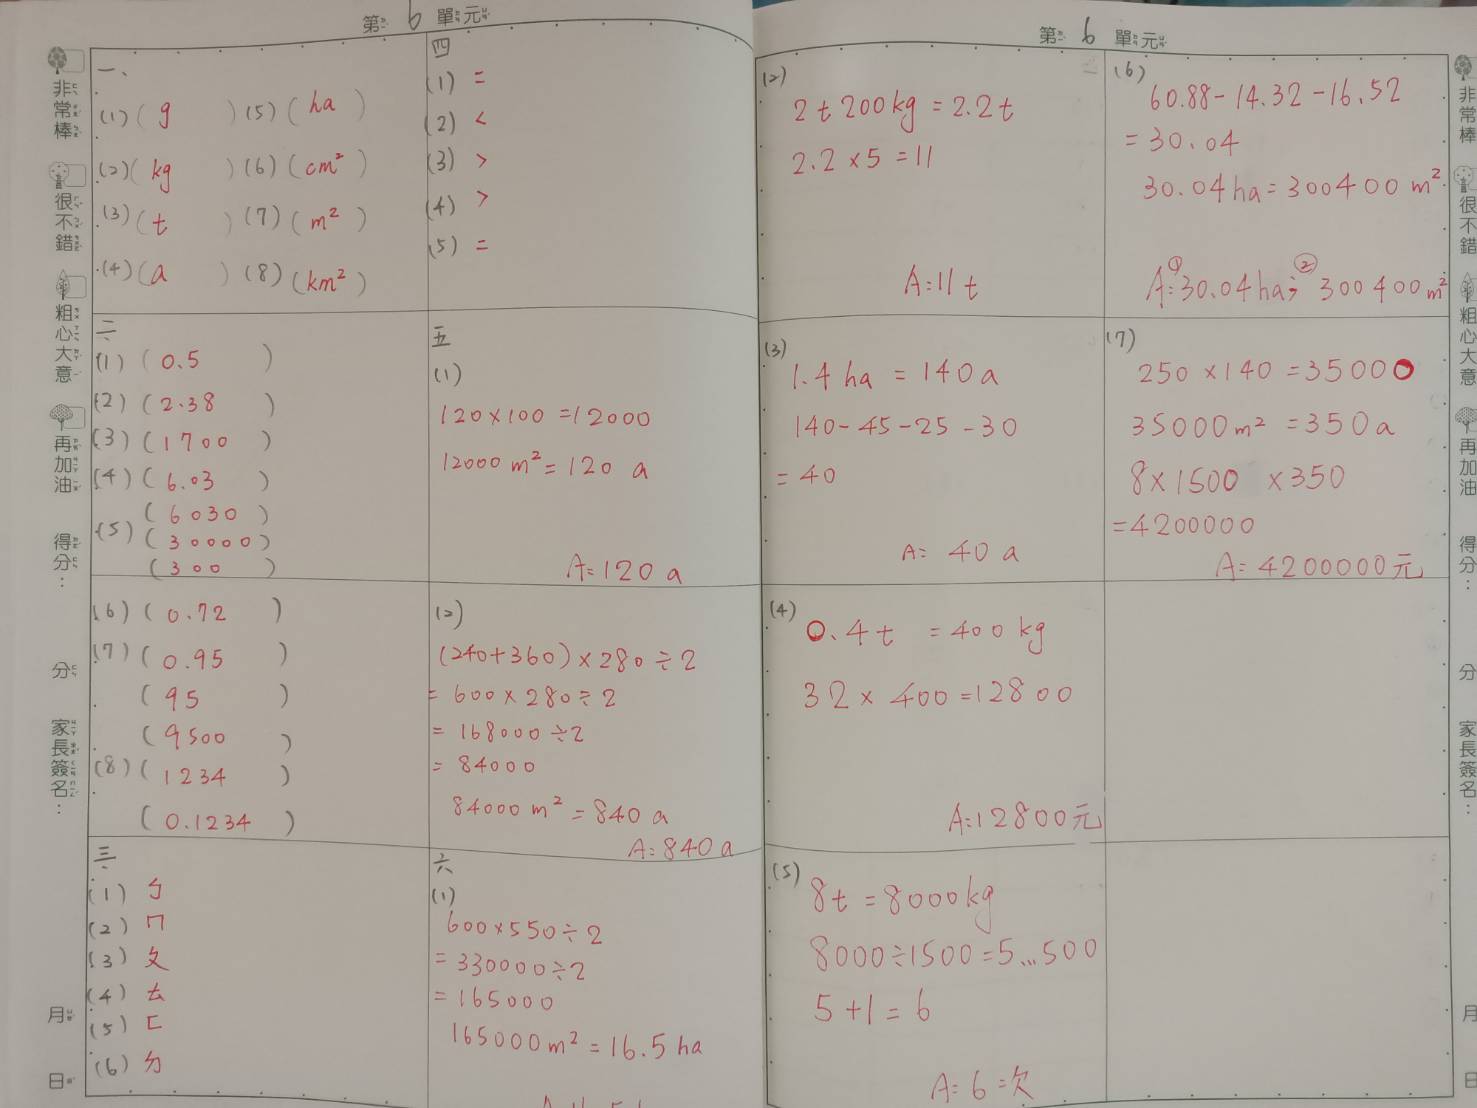 第 6 單元
一、
(1)( g ) (5)( ha )
(2)( kg ) (6)( cm² )
(3)( t ) (7)( m² )
(4)( a ) (8)( km² )
二、
(1)( 0.5 )
(2)( 2.38 )
(3)( 1700 )
(4)( 6.03 )
( 6030 )
(5)( 30000 )
( 300 )
(6)( 0.72 )
(7)( 0.95 )
( 95 )
( 9500 )
(8)( 1234 )
( 0.1234 )
三、
(1) ㄅ
(2) ㄇ
(3) ㄆ
(4) ㄊ
(5) ㄈ
(6) ㄉ
四
(1) =
(2) <
(3) >
(4) >
(5) =
五
(1)
120×100=12000
12000 m²=120 a
A=120 a
(2)
(240+360)×280÷2
=600×280÷2
=168000÷2
=84000
84000 m²=840 a
A:840 a
六、
(1)
600×550÷2
=330000÷2
=165000
165000 m²=16.5 ha
非常棒
很不錯
粗心大意
再加油
得分：
分
家長簽名：
月
日
第 6 單元
(2)
2 t 200 kg = 2.2 t
2.2×5=11
A:11 t
(3)
1.4 ha = 140 a
140-45-25-30
=40
A= 40 a
(4)
0.4 t = 400 kg
32×400=12800
A:12800元
(5)
8 t = 8000 kg
8000÷1500=5…500
5+1=6
A= 6=次
(6)
60.88-14.32-16.52
=30.04
30.04 ha=300400 m²
① ②
A:30.04 ha; 300400 m²
(7)
250×140=35000
35000 m²=350 a
8×1500 ×350
=4200000
A=4200000元
非常棒
很不錯
粗心大意
再加油
得分：
分
家長簽名：
月
日